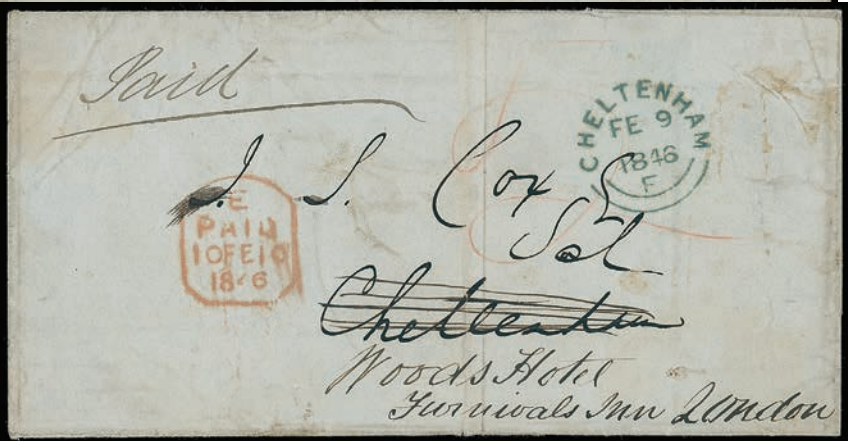 Paid
CHELTENHAM
FE 9
1846
F
J. S. Cox
Sol
E
PAID
10FE10
1846
Cheltenham
Woods Hotel
Furnivals Inn London